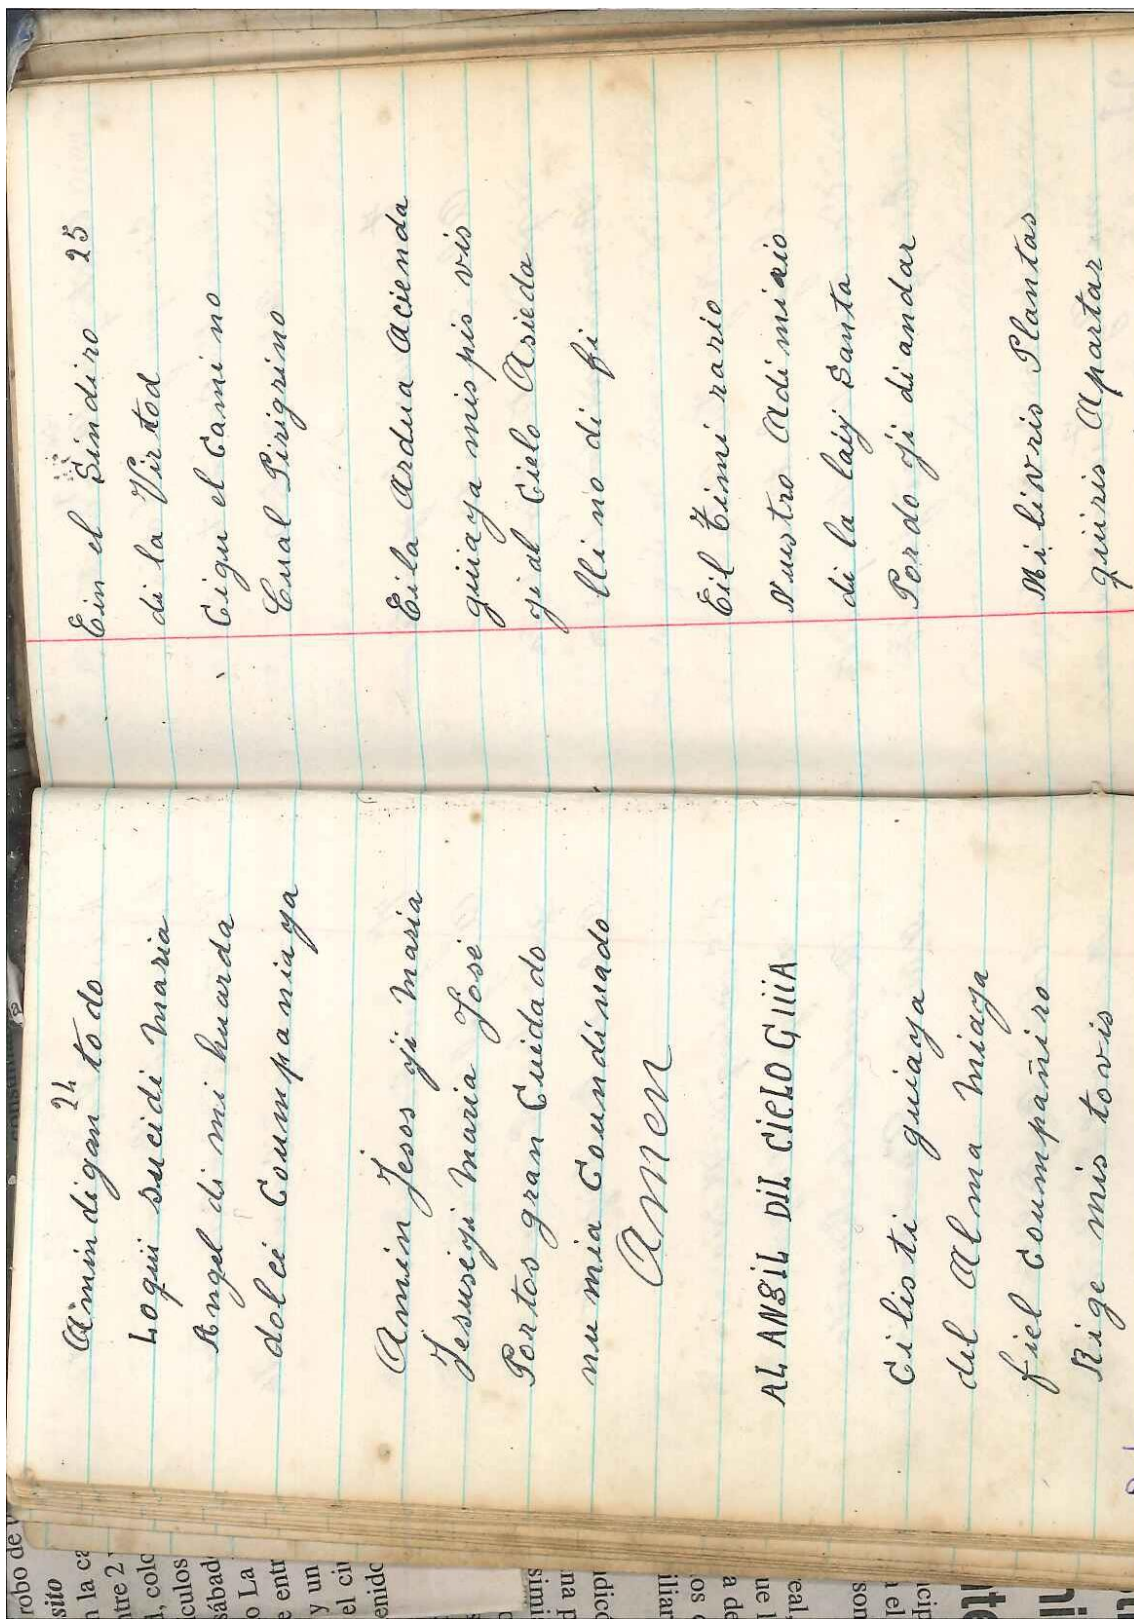 24
Amin digan todo
Loqui sucidi maria
Angel di mi huarda
dolci Coumpaniaya
Amin Jesos yi maria
Jesuseyi maria José
Portos gran Cuidado
nu mia Coundinado
Amen
AL ANGIL DIL CIELO GUIIA
Cilisti guiaya
del Alma miaya
fiel Coumpañiro
Rige mis tovis
25
Ein el Sindiro
di la Virtod
Cigu el Camino
Cual Pirigrino
Eila ardua acienda
guiaya mis pis vis
yi al Cielo Asieda
lli no di fi
Eil Timi rario
Nuestro Adi mi rio
di la laiy Santa
Por do yi di andar
Mi livris Plantas
quiris Apartar
robo de
sito
n la ca
ntre 2
l, colo
culos
sábad
o La
e entr
y un
el ciu
enido